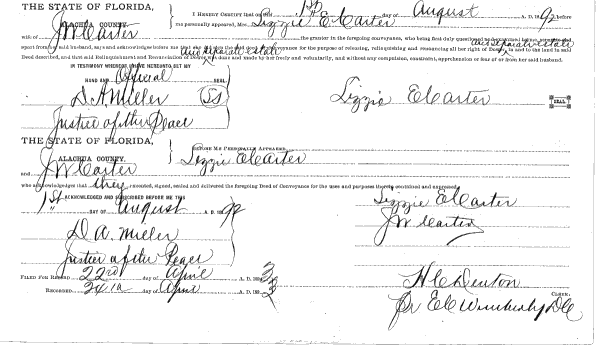 THE STATE OF FLORIDA,
ALACHUA COUNTY.
I HEREBY CERTIFY that on 1st day of August A. D. 1892 before
me personally appeared, Mrs. Lizzie E Carter
wife of J W Carter the grantor in the foregoing conveyance, who being first duly questioned
apart from said husband, says and acknowledges before me that she for the purpose of releasing, relinquishing and renouncing all her right of and separate estate in and to the land in said
and separate estate
Deed described, and that said Relinquishment and Renunciation of were made by her freely and voluntarily, and without any compulsion, constraint, apprehension or fear of or from her said husband.
IN TESTIMONY WHEREOF I HAVE HEREUNTO SET MY
HAND AND Official SEAL
D. A. Miller SS Lizzie E Carter SEAL
Justice of the Peace
THE STATE OF FLORIDA,
ALACHUA COUNTY.
BEFORE ME PERSONALLY APPEARED
Lizzie E Carter
and J W Carter
who acknowledges that they executed, signed, sealed and delivered the foregoing Deed of Conveyance for the uses and purposes therein contained and expressed.
1st ACKNOWLEDGED AND SUBSCRIBED BEFORE ME THIS
DAY OF August A. D. 1892
Lizzie E Carter
J W Carter
D. A. Miller
Justice of the Peace
FILED FOR RECORD 22nd day of April A. D. 1893
RECORDED 24th day of April A. D. 1893
H C Denton
CLERK.
Pr E C Wimberly DC